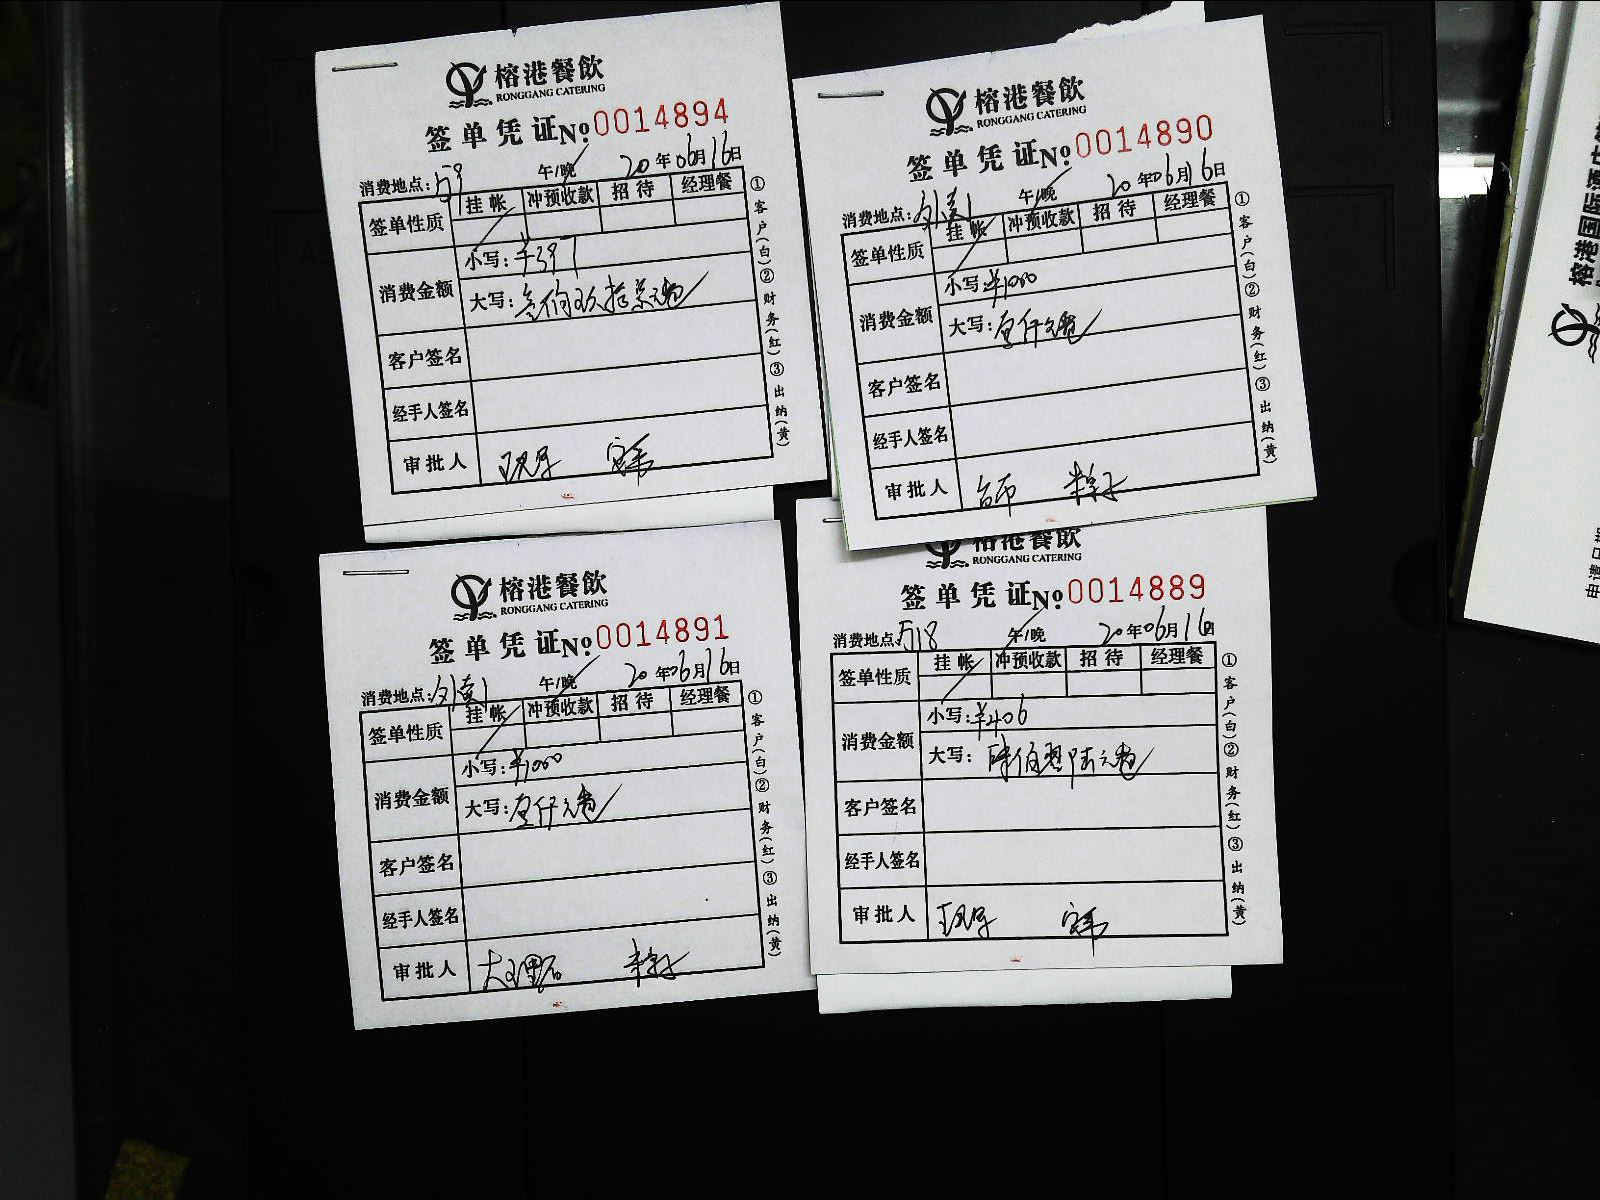 榕港餐飲
RONGGANG CATERING
签单凭证 No:0014894
消费地点: 午/晚 20年06月16日
签单性质 挂帐 冲预收款 招待 经理餐
消费金额 小写:
大写:
客户签名
经手人签名
审批人
①客户(白)②财务(红)③出纳(黄)
榕港餐飲
RONGGANG CATERING
签单凭证 No:0014890
消费地点: 午/晚 20年06月16日
签单性质 挂帐 冲预收款 招待 经理餐
消费金额 小写:¥1000
大写:壹仟元整
客户签名
经手人签名
审批人
①客户(白)②财务(红)③出纳(黄)
榕港餐飲
RONGGANG CATERING
签单凭证 No:0014891
消费地点: 午/晚 20年06月16日
签单性质 挂帐 冲预收款 招待 经理餐
消费金额 小写:¥1000
大写:壹仟元整
客户签名
经手人签名
审批人
①客户(白)②财务(红)③出纳(黄)
榕港餐飲
RONGGANG CATERING
签单凭证 No:0014889
消费地点:518 午/晚 20年06月16日
签单性质 挂帐 冲预收款 招待 经理餐
消费金额 小写:¥406
大写:肆佰零陆元整
客户签名
经手人签名
审批人
①客户(白)②财务(红)③出纳(黄)
榕港国际酒店